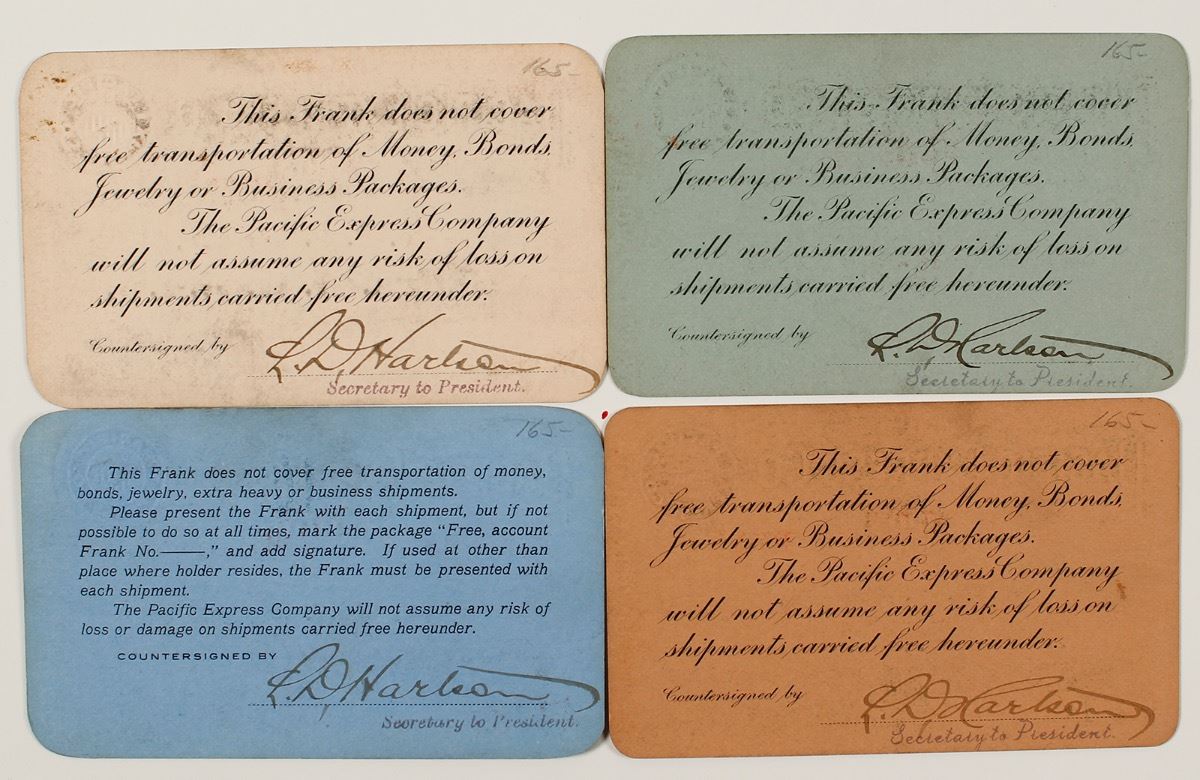 165-
This Frank does not cover
free transportation of Money, Bonds,
Jewelry or Business Packages.
The Pacific Express Company
will not assume any risk of loss on
shipments carried free hereunder.
Countersigned by
Secretary to President.
165-
This Frank does not cover
free transportation of Money, Bonds,
Jewelry or Business Packages.
The Pacific Express Company
will not assume any risk of loss on
shipments carried free hereunder.
Countersigned by
Secretary to President.
165-
This Frank does not cover free transportation of money,
bonds, jewelry, extra heavy or business shipments.
Please present the Frank with each shipment, but if not
possible to do so at all times, mark the package "Free, account
Frank No.———," and add signature. If used at other than
place where holder resides, the Frank must be presented with
each shipment.
The Pacific Express Company will not assume any risk of
loss or damage on shipments carried free hereunder.
COUNTERSIGNED BY
Secretary to President.
165-
This Frank does not cover
free transportation of Money, Bonds,
Jewelry or Business Packages.
The Pacific Express Company
will not assume any risk of loss on
shipments carried free hereunder.
Countersigned by
Secretary to President.